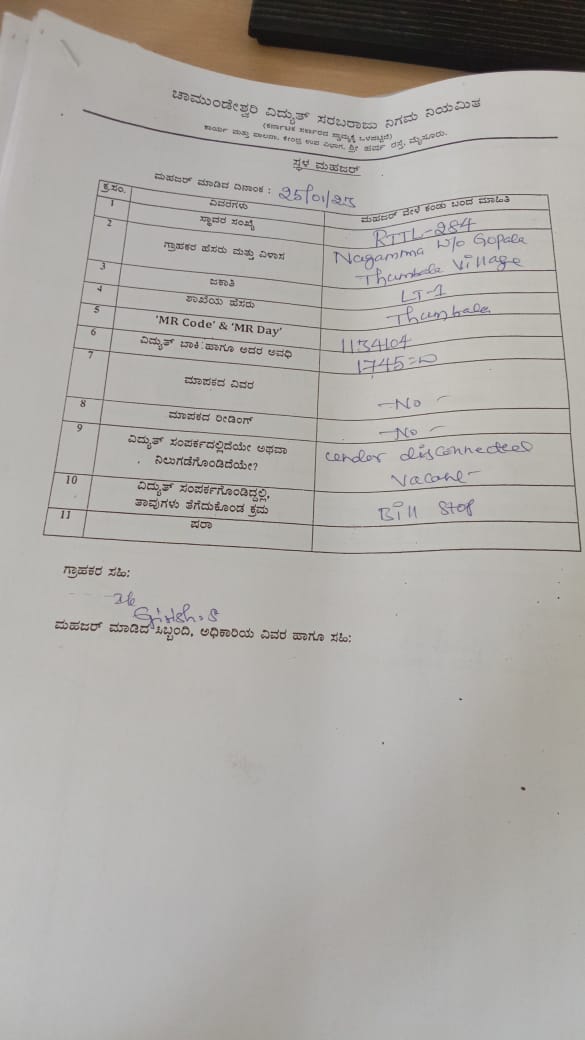 ಚಾಮುಂಡೇಶ್ವರಿ ವಿದ್ಯುತ್ ಸರಬರಾಜು ನಿಗಮ ನಿಯಮಿತ
(ಕರ್ನಾಟಕ ಸರ್ಕಾರದ ಸ್ವಾಮ್ಯಕ್ಕೆ ಒಳಪಟ್ಟಿದೆ)
ಕಾರ್ಯ ಮತ್ತು ಪಾಲನಾ, ಕೇಂದ್ರ ಉಪ ವಿಭಾಗ, ಶ್ರೀ ಹರ್ಷ ರಸ್ತೆ, ಮೈಸೂರು.
ಸ್ಥಳ ಮಹಜರ್
ಮಹಜರ್ ಮಾಡಿದ ದಿನಾಂಕ : 25/01/23
ಕ್ರ.ಸಂ. ವಿವರಗಳು ಮಹಜರ್ ವೇಳೆ ಕಂಡು ಬಂದ ಮಾಹಿತಿ
1 ಸ್ಥಾವರ ಸಂಖ್ಯೆ RTTL-284
2 ಗ್ರಾಹಕರ ಹೆಸರು ಮತ್ತು ವಿಳಾಸ Nagamma W/o Gopala
Thumbala Village
3 ಜಕಾತಿ LT-1
4 ಶಾಖೆಯ ಹೆಸರು Thumbala
5 'MR Code' & 'MR Day' 1134104
6 ವಿದ್ಯುತ್ ಬಾಕಿ ಹಾಗೂ ಅದರ ಅವಧಿ 1745=00
7 ಮಾಪಕದ ವಿವರ -No-
8 ಮಾಪಕದ ರೀಡಿಂಗ್ -No-
9 ವಿದ್ಯುತ್ ಸಂಪರ್ಕದಲ್ಲಿದೆಯೇ ಅಥವಾ disconnected
ನಿಲುಗಡೆಗೊಂಡಿದೆಯೇ?
10 ವಿದ್ಯುತ್ ಸಂಪರ್ಕಗೊಂಡಿದ್ದಲ್ಲಿ, Bill Stop
ತಾವುಗಳು ತೆಗೆದುಕೊಂಡ ಕ್ರಮ
11 ಷರಾ
ಗ್ರಾಹಕರ ಸಹಿ:
Girish.S
ಮಹಜರ್ ಮಾಡಿದ ಸಿಬ್ಬಂದಿ, ಅಧಿಕಾರಿಯ ವಿವರ ಹಾಗೂ ಸಹಿ: